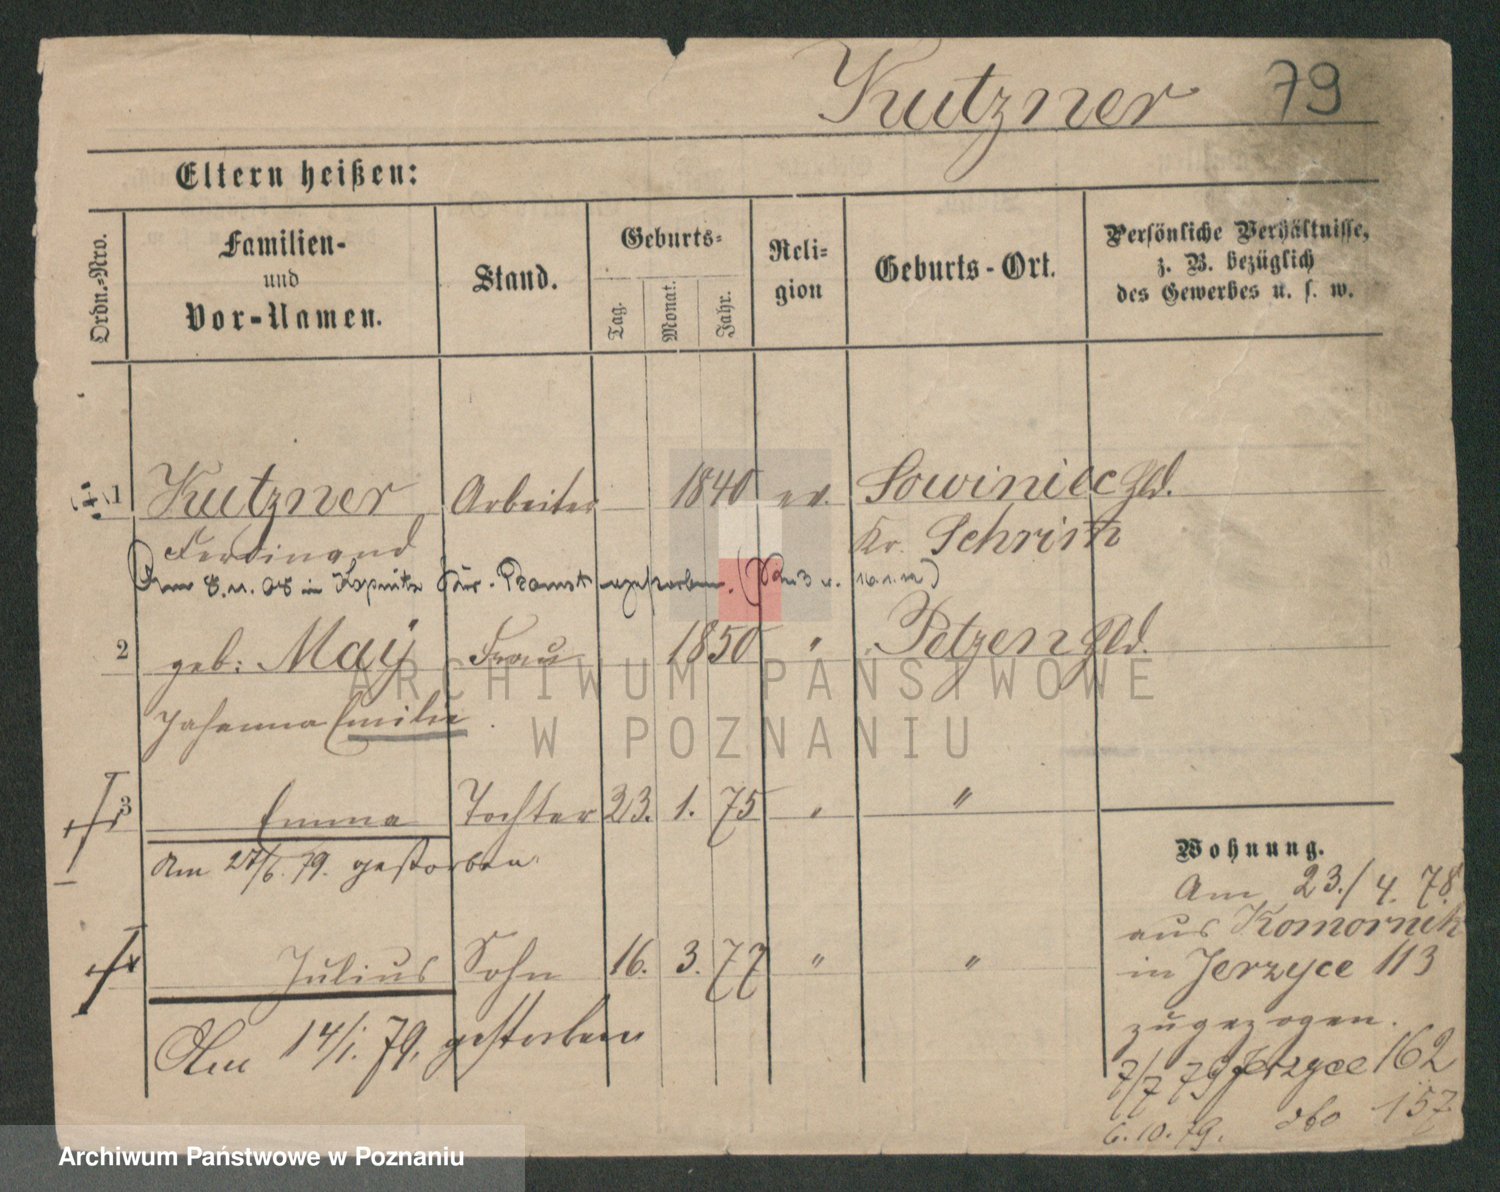 Kutzner 79
Eltern heißen:
Ordn.-Nro.
Familien-
und
Vor-Namen.
Stand.
Geburts-
Tag.
Monat.
Jahr.
Reli-
gion
Geburts-Ort.
Persönliche Verhältnisse,
z. B. bezüglich
des Gewerbes u. s. w.
1 Kutzner Arbeiter 1840 ev. Sowiniec Gld.
Ferdinand Kr. Schrim
Am 8. 11. 08 in gestorben.
2 geb: May Frau 1850 " Petzen Gld.
Johanna Emilie
3 Emma Tochter 23. 1. 75 " "
Am 27/6. 79. gestorben.
Julius Sohn 16. 3. 77 " "
Am 14/1. 79. gestorben
Wohnung.
Am 23./4. 78.
aus Komornik
in Jerzyce 113
zugezogen.
7/7 79 Jerzyce 162
6.10.79. dto 157
ARCHIWUM PAŃSTWOWE
W POZNANIU
Archiwum Państwowe w Poznaniu